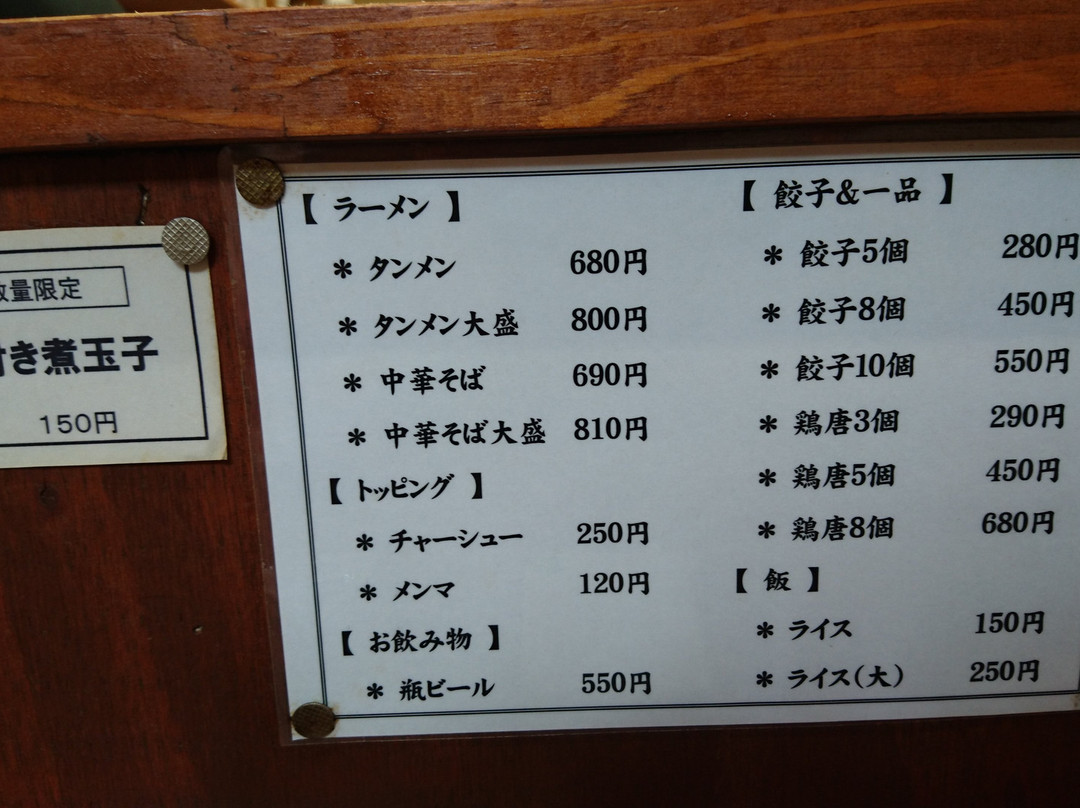 数量限定
付き煮玉子
150円
【 ラーメン 】
* タンメン 680円
* タンメン大盛 800円
* 中華そば 690円
* 中華そば大盛 810円
【 トッピング 】
* チャーシュー 250円
* メンマ 120円
【 お飲み物 】
* 瓶ビール 550円
【 餃子&一品 】
* 餃子5個 280円
* 餃子8個 450円
* 餃子10個 550円
* 鶏唐3個 290円
* 鶏唐5個 450円
* 鶏唐8個 680円
【 飯 】
* ライス 150円
* ライス(大) 250円